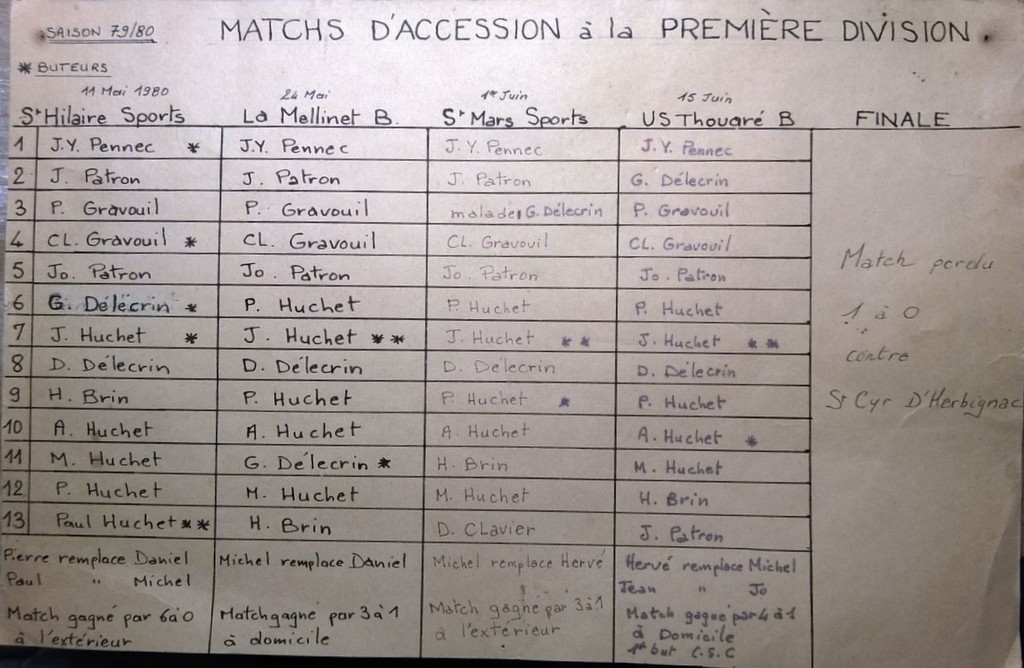 SAISON 79/80 MATCHS D'ACCESSION à la PREMIÈRE DIVISION.
* BUTEURS
11 Mai 1980 24 Mai 1er Juin 15 Juin
St Hilaire Sports La Mellinet B. St Mars Sports US Thouaré B FINALE
1 J.Y. Pennec * J.Y. Pennec J.Y. Pennec J.Y. Pennec
2 J. Patron J. Patron J. Patron G. Délecrin
3 P. Gravouil P. Gravouil malade G. Délecrin P. Gravouil
4 CL. Gravouil * CL. Gravouil CL. Gravouil CL. Gravouil
5 Jo. Patron Jo. Patron Jo. Patron Jo. Patron
6 G. Délécrin * P. Huchet P. Huchet P. Huchet
7 J. Huchet * J. Huchet ** J. Huchet ** J. Huchet **
8 D. Délecrin D. Délecrin D. Délecrin D. Délecrin
9 H. Brin P. Huchet P. Huchet * P. Huchet
10 A. Huchet A. Huchet A. Huchet A. Huchet *
11 M. Huchet G. Délecrin * H. Brin M. Huchet
12 P. Huchet M. Huchet M. Huchet H. Brin
13 Paul Huchet ** H. Brin D. Clavier J. Patron
Pierre remplace Daniel
Paul " Michel
Match gagné par 6 à 0
à l'extérieur
Michel remplace Daniel
Match gagné par 3 à 1
à domicile
Michel remplace Hervé
Match gagné par 3 à 1
à l'extérieur
Hervé remplace Michel
Jean " Jo
Match gagné par 4 à 1
à Domicile
1er but C.S.C
Match perdu
1 à 0
contre
St Cyr D'Herbignac